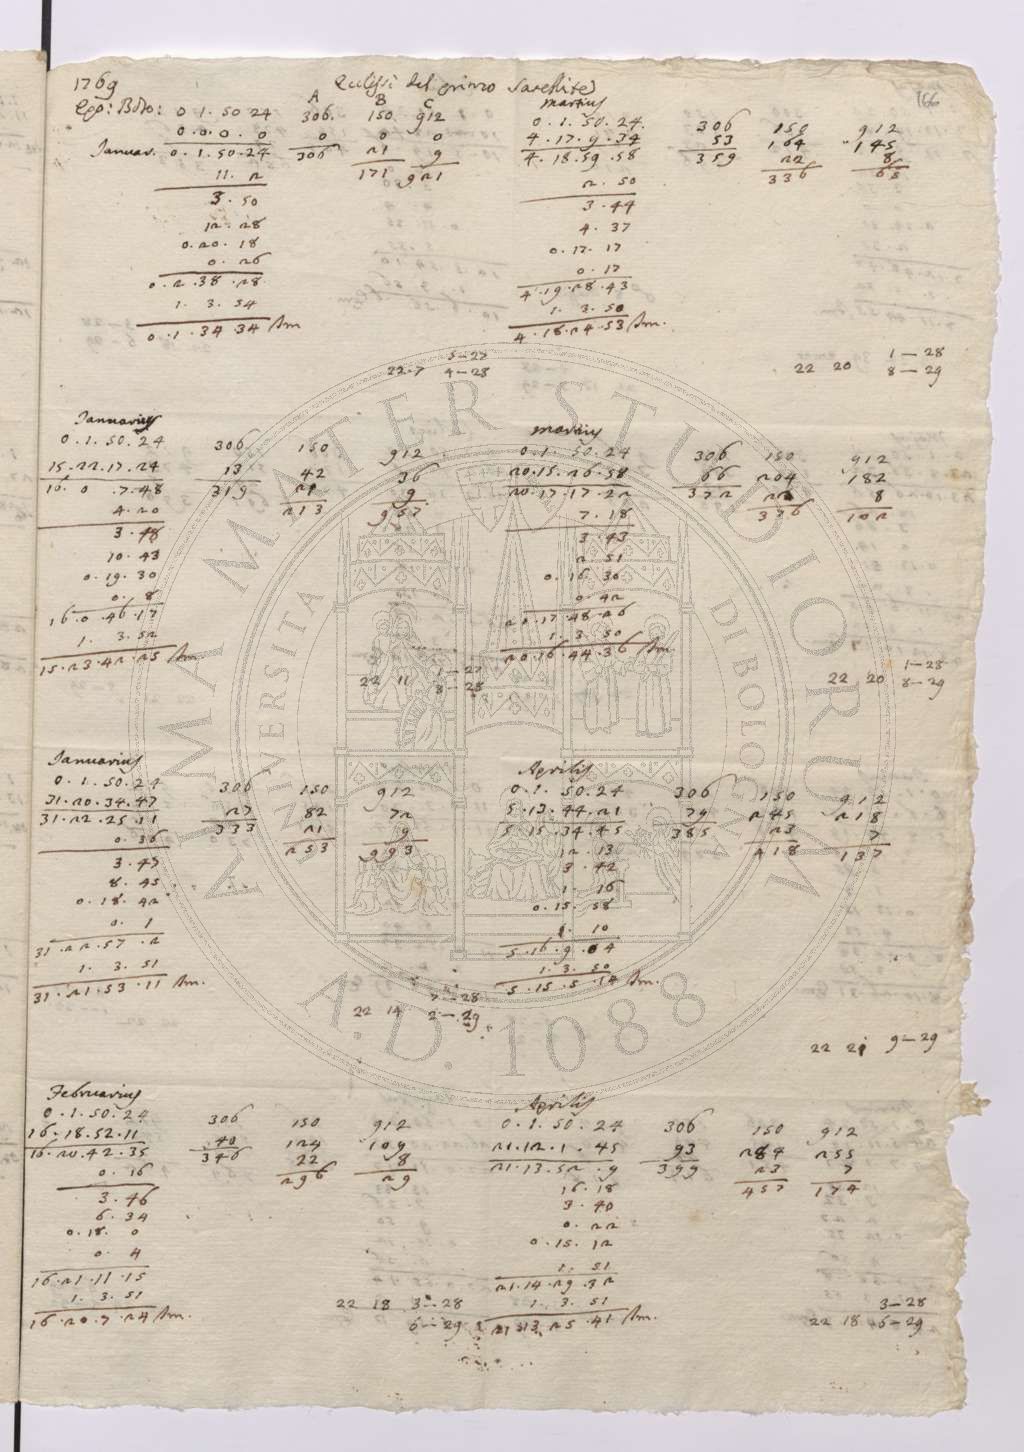 1769 Eclissi del primo Satellite 166
A B C
Epo: Bono: 0 . 1 . 50 . 24 306. 150. 912
0 . 0 . 0 . 0 0 0 0
Januar. 0 . 1 . 50 . 24 306 21 9
171 921
11 . 2
3 . 50
12 . 28
0 . 20 . 18
0 . 26
0 . 2 . 38 . 28
1 . 3 . 54
0 . 1 . 34 34
5-27
22 . 7 4-28
Martius
0 . 1 . 50 . 24. 306 150 912
4 . 17 . 9 . 34 53 164 145
4 . 18 . 59 . 58 359 22 8
336 65
2 . 50
3 . 44
4 . 37
0 . 17 . 17
0 . 17
4 . 19 . 28 . 43
1 . 3 . 50
4 . 18 . 24 . 53
1-28
22 20 8-29
Januarius
0 . 1 . 50 . 24 306 150 912
15 . 22 . 17 . 24 13 42 36
16 . 0 . 7 . 48 319 21 9
213 957
4 . 20
3 . 48
10 . 43
0 . 19 . 30
0 . 8
16 . 0 . 46 . 17
1 . 3 . 52
15 . 23 . 42 . 25
1-27
22 11 8-28
Martius
0 . 1 . 50 . 24 306 150 912
20 . 15 . 26 . 58 66 204 182
20 . 17 . 17 . 22 372 22 8
376 102
7 . 18
3 . 43
2 . 51
0 . 16 . 30
0 . 42
20 . 17 . 48 . 26
1 . 3 . 50
20 . 16 . 44 . 36
1-28
22 20 8-29
Januarius
0 . 1 . 50 . 24 306 150 912
31 . 20 . 34 . 47 27 82 72
31 . 22 . 25 . 11 333 21 9
253 993
0 . 36
3 . 47
8 . 45
0 . 18 . 42
0 . 1
31 . 22 . 57 . 2
1 . 3 . 51
31 . 21 . 53 . 11
7-28
22 14 2-29
Aprilis
0 . 1 . 50 . 24 306 150 912
5 . 13 . 44 . 21 79 245 218
5 . 15 . 34 . 45 385 23 7
418 137
12 . 13
3 . 42
1 . 16
0 . 15 . 58
1 . 10
5 . 16 . 9 . 04
1 . 3 . 50
5 . 15 . 5 . 14
22 21 9-29
Februarius
0 . 1 . 50 . 24 306 150 912
16 . 18 . 52 . 11 40 124 109
16 . 20 . 42 . 35 346 22 8
296 29
0 . 16
3 . 46
6 . 34
0 . 18 . 0
0 . 4
16 . 21 . 11 . 15
1 . 3 . 51
16 . 20 . 7 . 24
22 18 3-28
6-29
Aprilis
0 . 1 . 50 . 24 306 150 912
21 . 12 . 1 . 45 93 284 255
21 . 13 . 52 . 9 399 23 7
457 174
16 . 18
3 . 40
0 . 22
0 . 15 . 12
1 . 51
21 . 14 . 29 . 32
1 . 3 . 51
21 . 13 . 25 . 41
3-28
22 18 6-29
ALMA MATER STUDIORUM
UNIVERSITÀ DI BOLOGNA
A.D. 1088